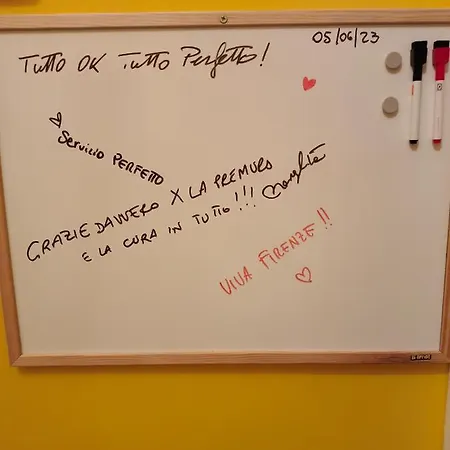 05/06/23
Tutto OK Tutto Perfetto!
Servicio PERFETTO
GRAZIE DAVVERO X LA PREMURA
E LA CURA IN TUTTO!!!
VIVA FIRENZE!!